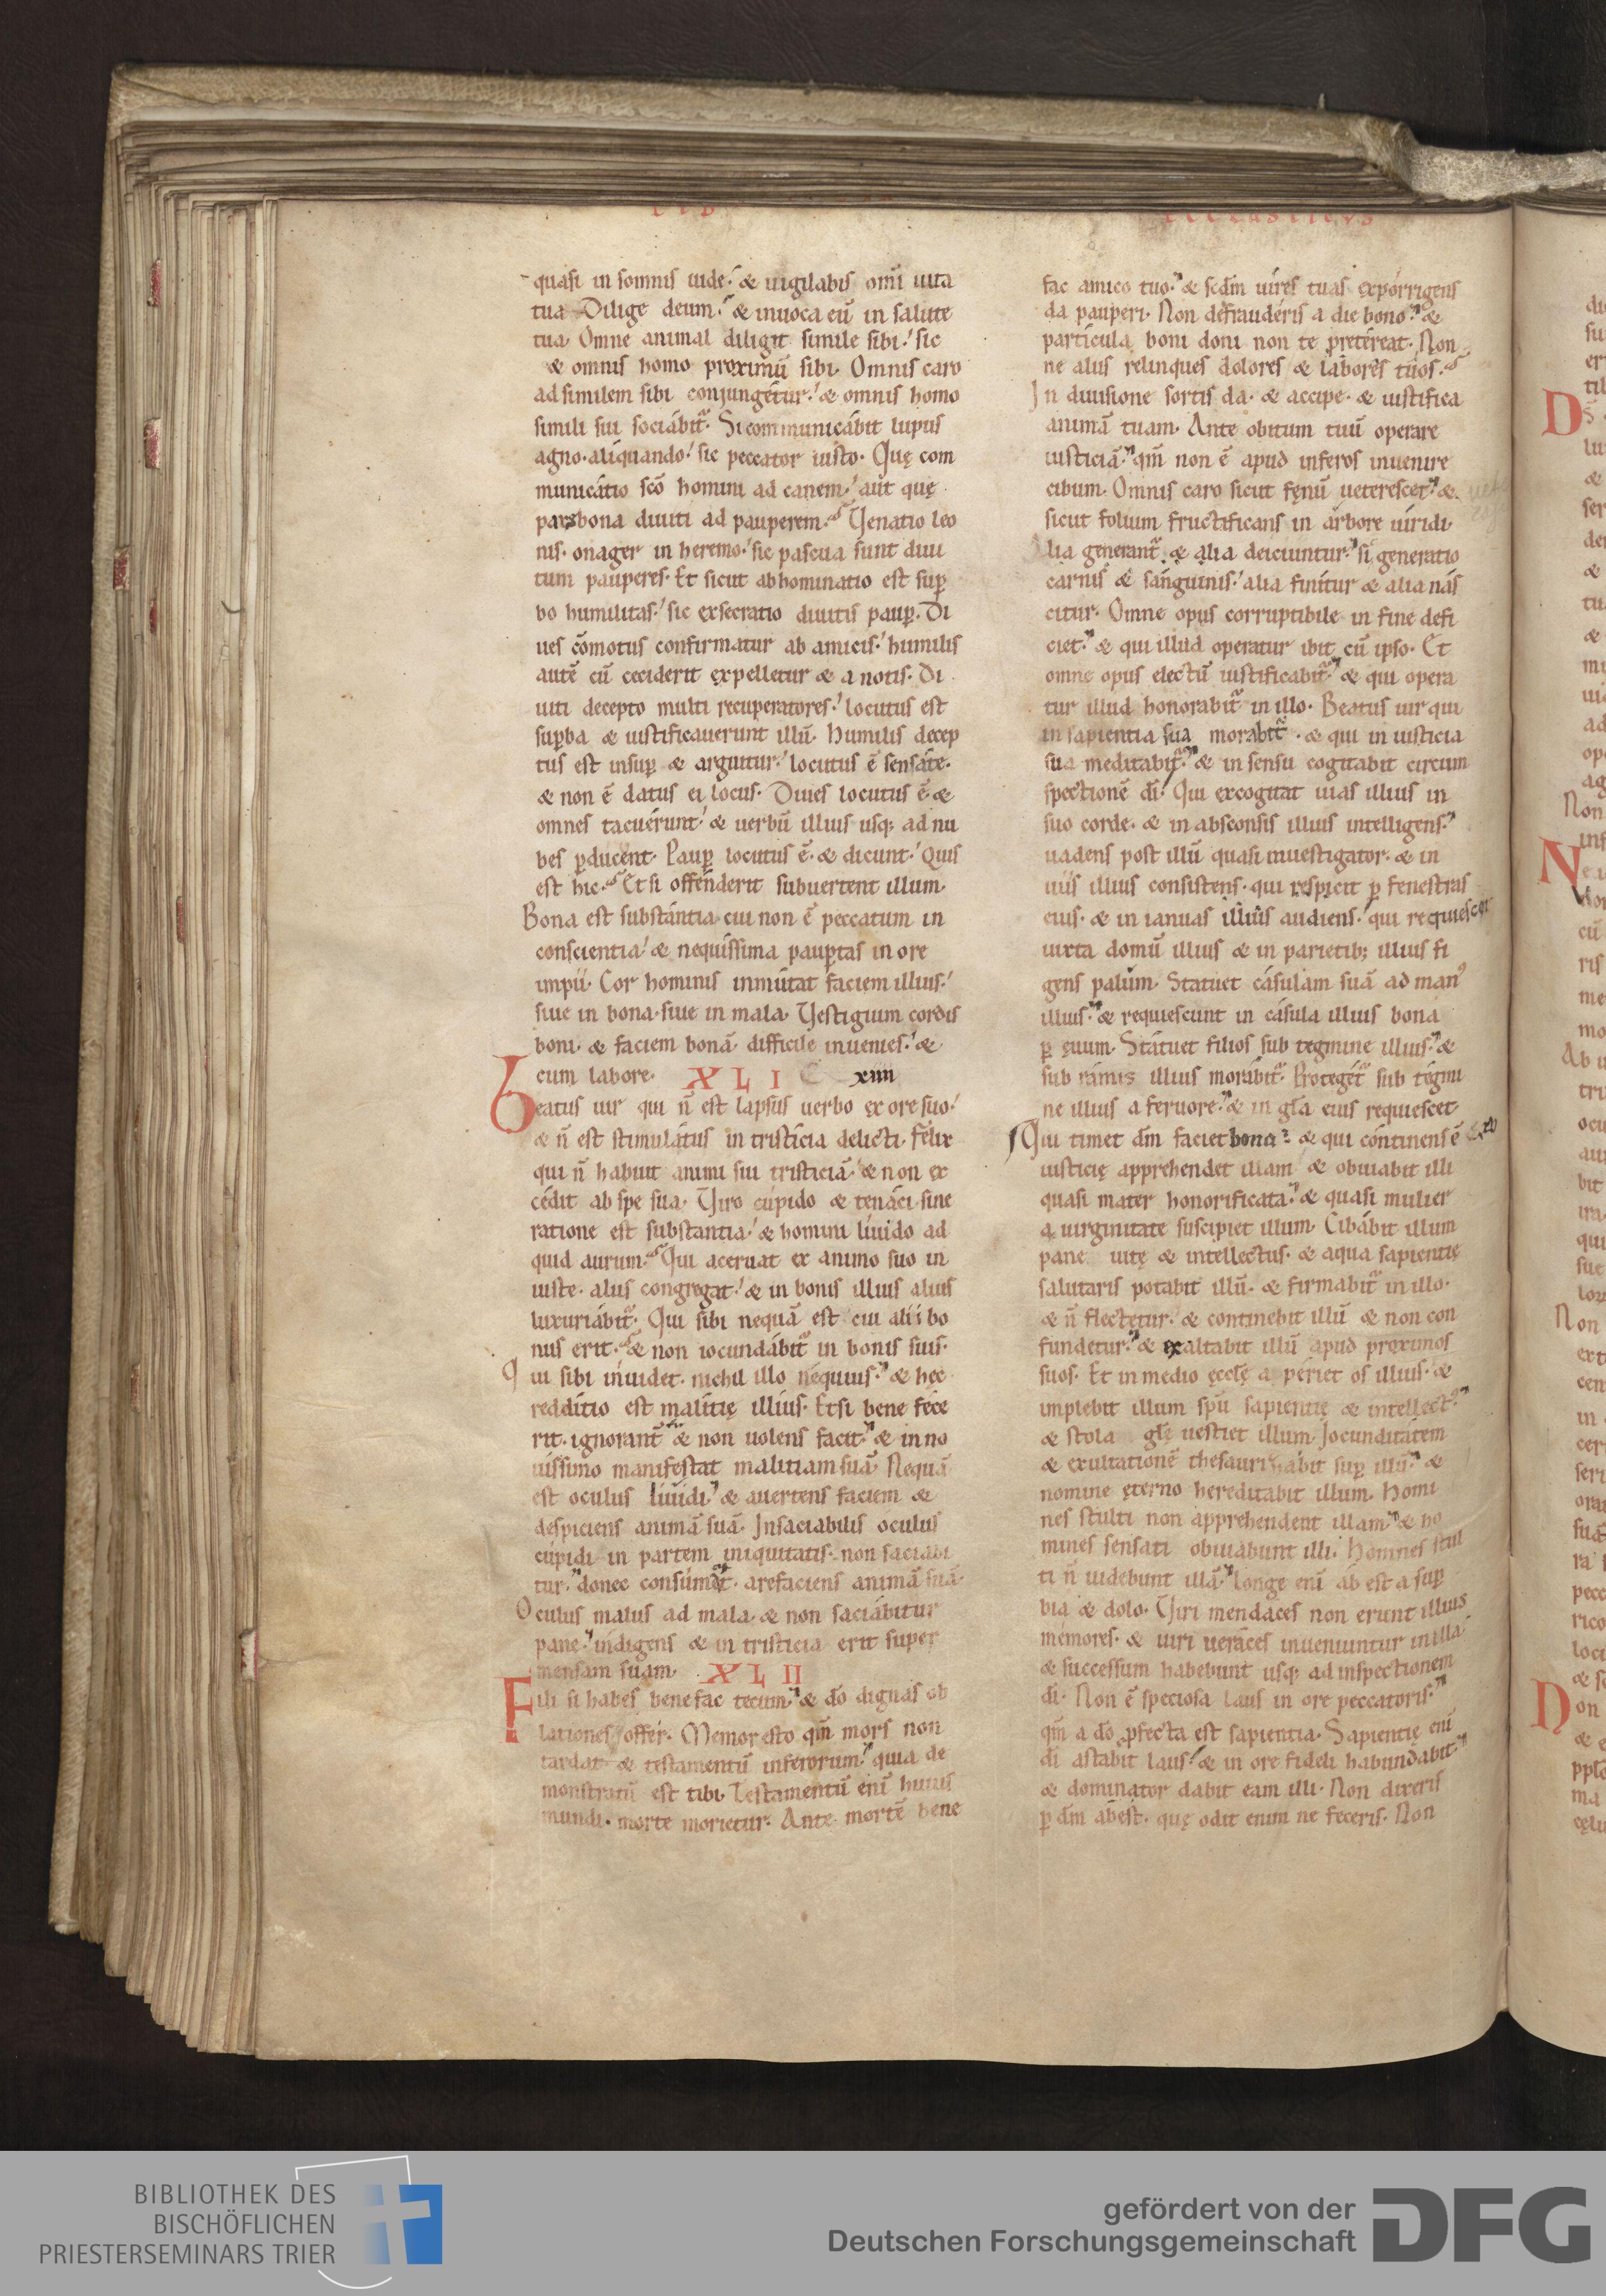 LIB
quasi in somnis uide. & uigilabis om̄i uita
tua Dilige deum. & inuoca eū in salute
tua. Omne animal diligit simile sibi. sic
& omnis homo proximū sibi. Omnis caro
ad similem sibi conjungetur. & omnis homo
simili sui sociabit᷑. Si communicabit lupus
agno. aliquando. sic peccator iusto. Quę com
municatio scō homini ad canem. aut quę
pars bona diuiti ad pauperem. Uenatio leo
nis. onager in heremo. sic pascua sunt diui
tum pauperes. Et sicut abhominatio est sup̱
bo humilitas. sic exsecratio diuitis paup̱. Di
ues cōmotus confirmatur ab amicis. humilis
autē cū ceciderit expelletur & a notis. Di
uiti decepto multi recuperatores. locutus est
sup̱ba & iustificauerunt illū. Humilis decep
tus est insup̱ & arguitur. locutus ē sensate.
& non ē datus ei locus. Diues locutus ē. &
omnes tacuerunt. & uerbū illius usq; ad nu
bes p̱ducent. Paup̱ locutus ē. & dicunt. Quis
est hic. Et si offenderit subuertent illum.
Bona est substantia cui non ē peccatum in
conscientia. & nequissima paup̱tas in ore
impii. Cor hominis inmutat faciem illius.
siue in bona. siue in mala. Uestigium cordis
boni. & faciem bonā difficile inuenies. &
cum labore. XLI xiiii
Beatus uir qui n̄ est lapsus uerbo ex ore suo.
& n̄ est stimulatus in tristicia delicti. Felix
qui n̄ habuit animi sui tristiciā. & non ex
cedit ab spe sua. Uiro cupido & tenaci. sine
ratione est substantia. & homini liuido ad
quid aurum. Qui aceruat ex animo suo in
iuste. aliis congregat. & in bonis illius alius
luxuriabit᷑. Qui sibi nequā est cui alii bo
nus erit. & non iocundabit᷑ in bonis suis.
Qui sibi inuidet. nichil illo nequius. & hęc
redditio est malitię illius. Et si bene fece
rit. ignorant᷑ & non uolens facit. & in no
uissimo manifestat malitiam suā. Nequā
est oculus liuidi. & auertens faciem &
despiciens animā suā. Insaciabilis oculus
cupidi in partem iniquitatis. non saciabi
tur. donec consumat. arefaciens animā suā.
Oculus malus ad mala. & non saciabitur
pane. indigens & in tristicia erit super
mensam suam. XLII
Fili si habes benefac tecum. & dō dignas ob
lationes offer. Memor esto qm̄ mors non
tardat & testamentū inferorum. quia de
monstratū est tibi. Testamentū enī huius
mundi. morte morietur. Ante mortē bene
ecclasticus
fac amico tuo. & scdm̄ uires tuas exporrigens
da pauperi. Non defrauderis a die bono. &
particula boni doni non te pretereat. Non
ne aliis relinques dolores & labores tuos.
In diuisione sortis da. & accipe. & iustifica
animā tuam. Ante obitum tuū operare
iusticiā. qm̄ non ē apud inferos inuenire
cibum. Omnis caro sicut fęnū ueterescet. &
sicut folium fructificans in arbore uiridi.
Alia generant᷑. & alia deiciuntur. si generatio
carnis & sanguinis. alia finitur & alia nas
citur. Omne opus corruptibile in fine defi
ciet. & qui illud operatur ibit cū ipso. Et
omne opus electū iustificabit᷑. & qui opera
tur illud honorabit᷑ in illo. Beatus uir qui
in sapientia sua morabit᷑. & qui in iusticia
sua meditabit᷑. & in sensu cogitabit circum
spectionē di. Qui excogitat uias illius in
suo corde. & in absconsis illius intelligens.
uadens post illū quasi inuestigator. & in
uiis illius consistens. qui respicit p̱ fenestras
eius. & in ianuas illius audiens. qui requiescet
iuxta domū illius & in parietib; illius fi
gens palum. Statuet casulam suā ad man⁹
illius. & requiescunt in casula illius bona
p̱ ęuum. Statuet filios sub tegmine illius. &
sub ramis illius morabit᷑. Proteget᷑ sub tegmi
ne illius a feruore. & in glā eius requiescet
Qui timet dm̄ faciet bona. & qui continens ē
iusticię apprehendet illam & obuiabit illi
quasi mater honorificata. & quasi mulier
a uirginitate suscipiet illum. Cibabit illum
pane uitę & intellectus. & aqua sapientię
salutaris potabit illū. & firmabit᷑ in illo.
& n̄ flectetur. & continebit illū & non con
fundetur. & exaltabit illū apud proximos
suos. Et in medio ęcclę aperiet os illius. &
implebit illum spū sapientię & intellect⁹.
& stola glę uestiet illum. Jocunditatem
& exultationē thesaurizabit sup̱ illū. &
nomine ęterno hereditabit illum. Homi
nes stulti non apprehendent illam. & ho
mines sensati obuiabunt illi. Homines stul
ti n̄ uidebunt illā. longe enī abest a sup̱
bia & dolo. Uiri mendaces non erunt illius
memores. & uiri ueraces inueniuntur in illa.
& successum habebunt usq; ad inspectionem
di. Non ē speciosa laus in ore peccatoris.
qm̄ a dō p̱fecta est sapientia. Sapientię enī
di astabit laus. & in ore fideli habundabit.
& dominator dabit eam illi. Non dixeris
p̱ dm̄ abest. quę odit enim ne feceris. Non
BIBLIOTHEK DES
BISCHÖFLICHEN
PRIESTERSEMINARS TRIER
gefördert von der
Deutschen Forschungsgemeinschaft
DFG